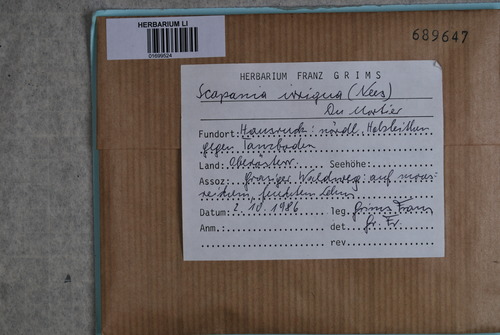 HERBARIUM LI
01699824
689647
HERBARIUM FRANZ GRIMS
Scapania irrigua (Nees)
Du Mortier
Fundort: Hausruck: nördl.
gegen
Land: Oberösterr. Seehöhe:
Assoz: grasiger Waldweg: auf
feuchtem Lehm
Datum: 2 10 1986 leg. Grims Franz
Anm.: det Gr. Fr.
rev.